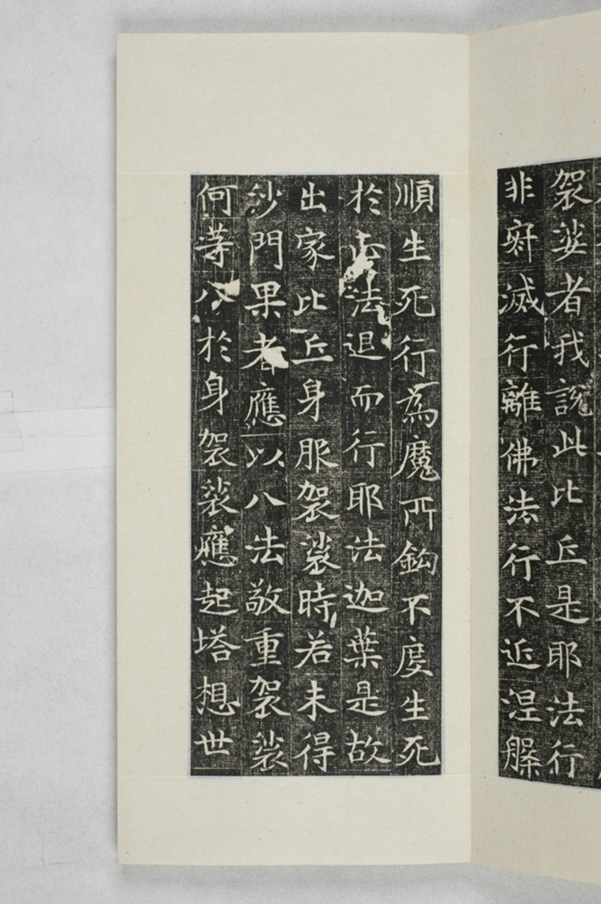 袈裟者我說此比丘是耶法行
非寂滅行離佛法行不近涅槃
順生死行為魔所鈎不度生死
於正法退而行耶法迦葉是故
出家比丘身服袈裟時若未得
沙門果者應以八法敬重袈裟
何等八於身袈裟應起塔想世